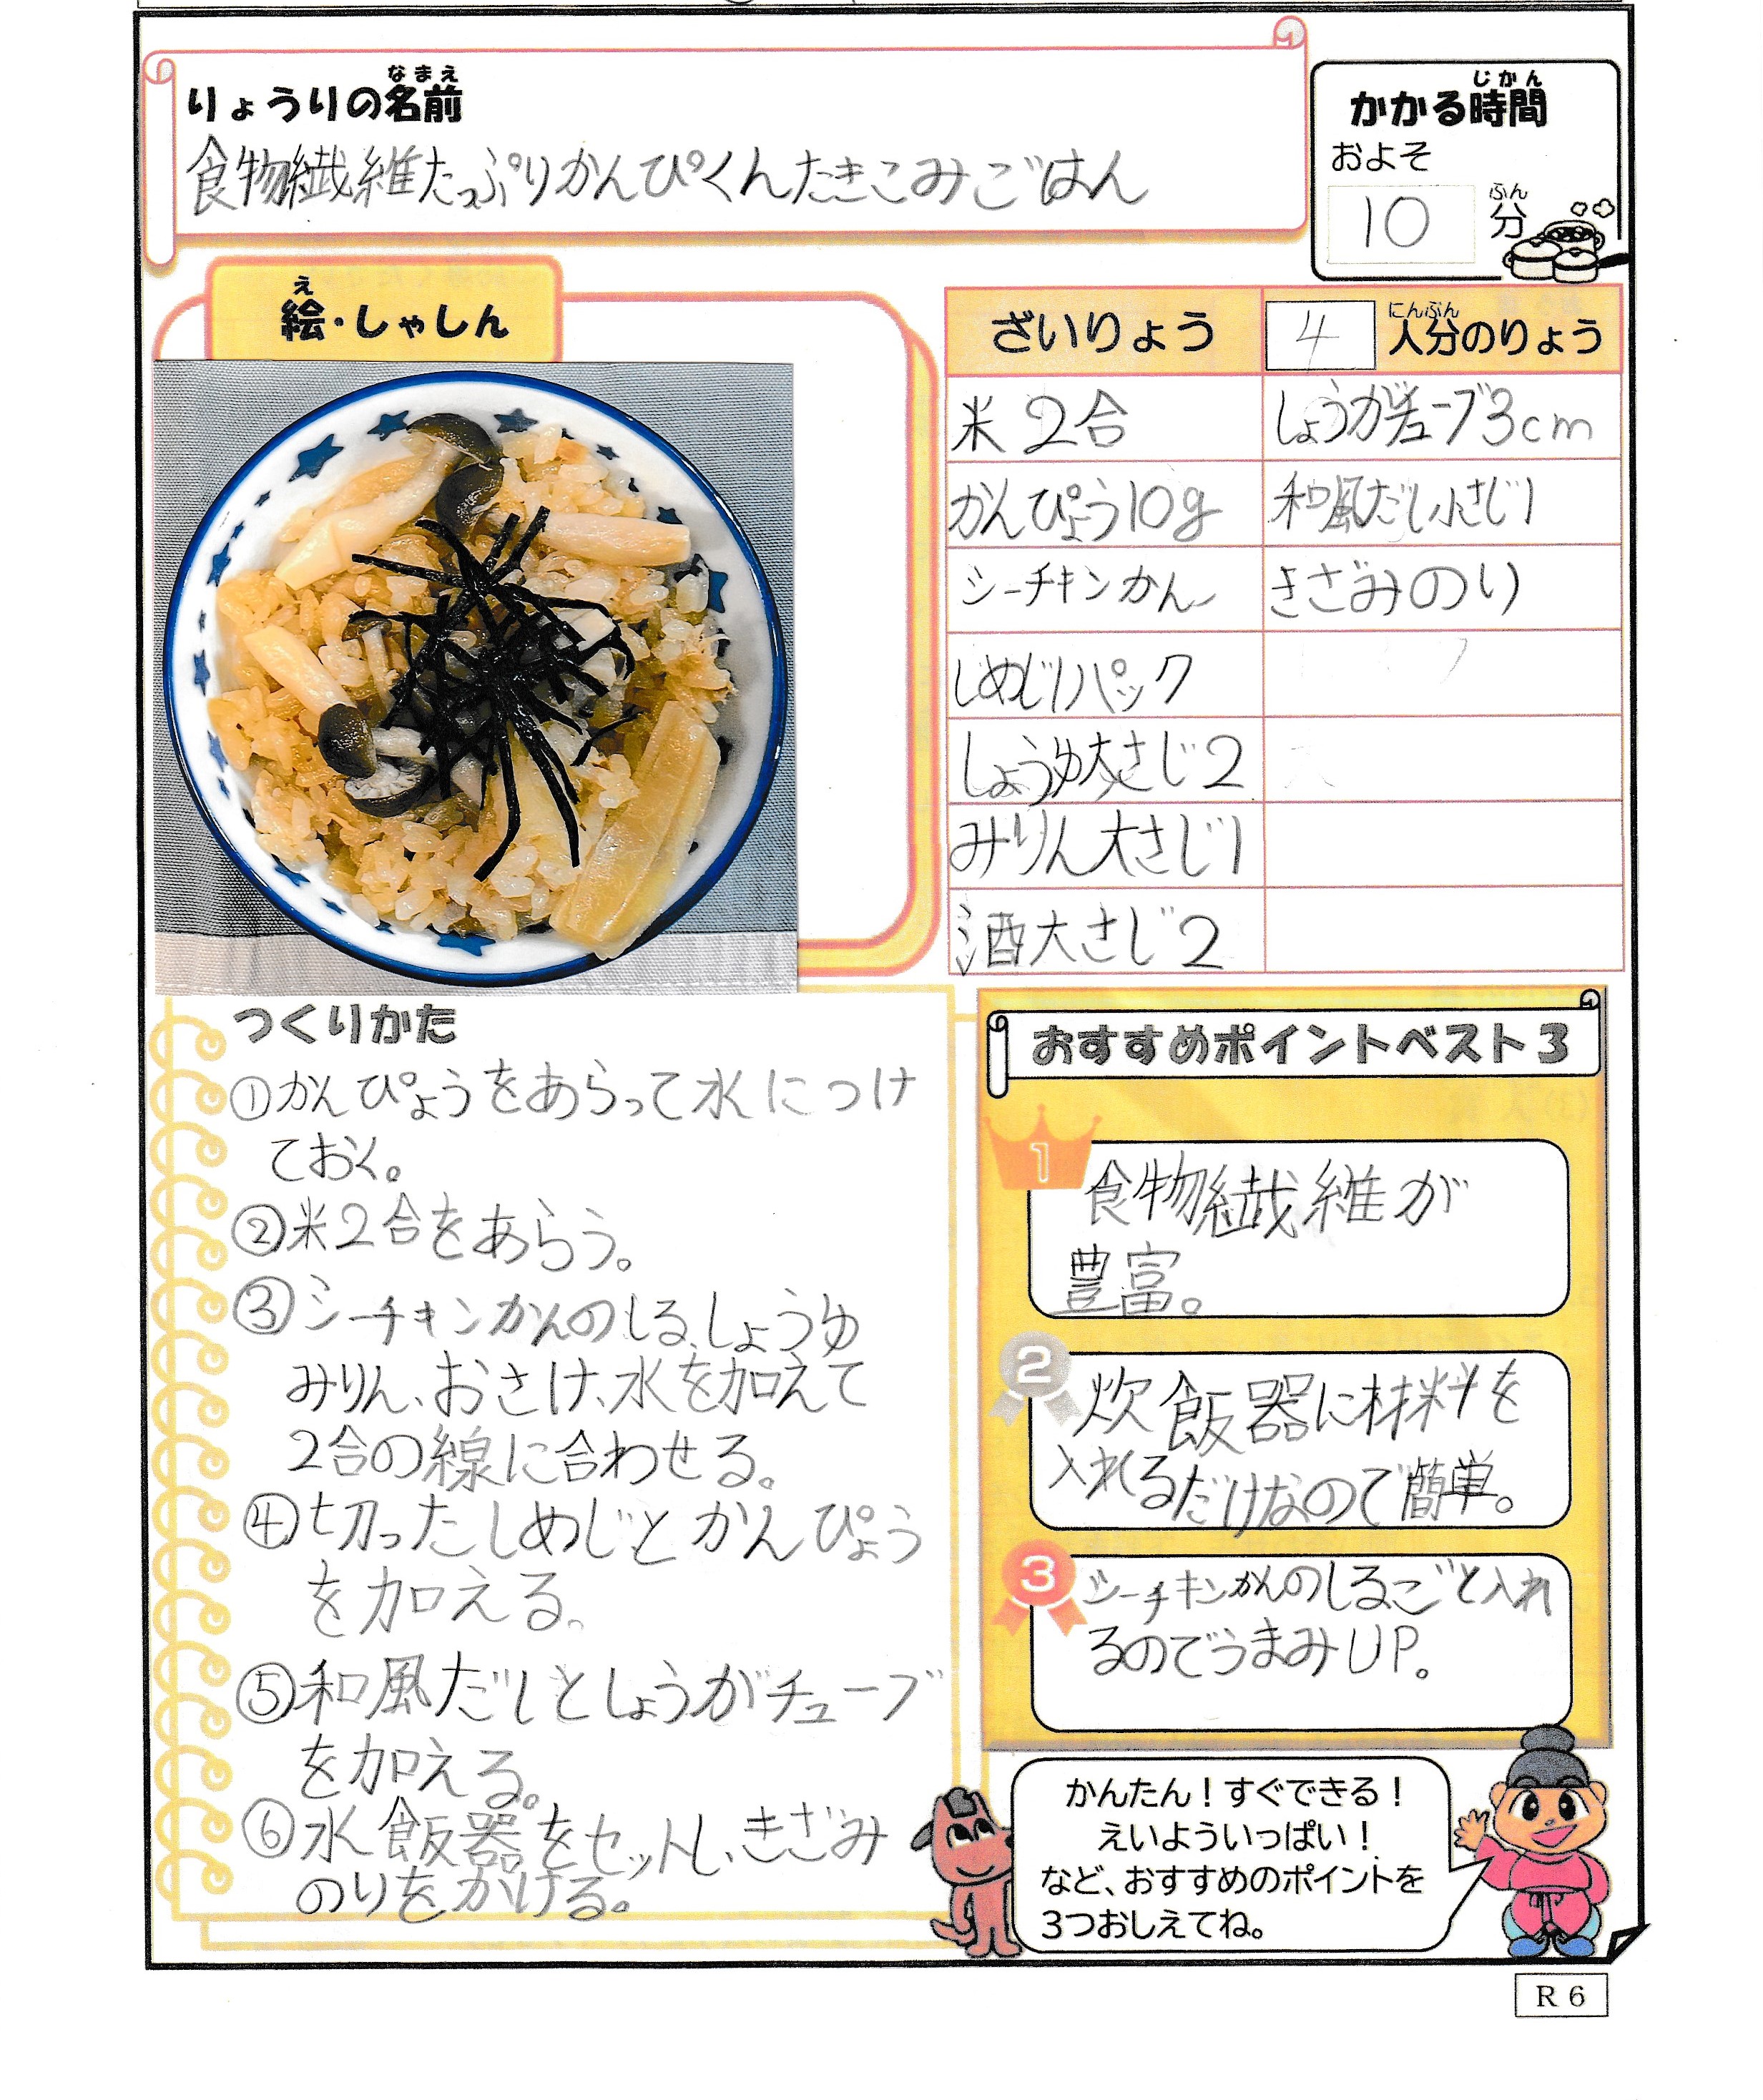 りょうりの名前
なまえ
食物繊維たっぷりかんぴくんたきこみごはん
かかる時間
じかん
およそ
10分
ふん
絵・しゃしん
え
ざいりょう
4人分のりょう
にんぶん
米2合
しょうがチューブ3cm
かんぴょう10g
和風だし小さじ1
シーチキンかん
きざみのり
しめじ1パック
しょうゆ大さじ2
みりん大さじ1
酒大さじ2
つくりかた
①かんぴょうをあらって水につけ
ておく。
②米2合をあらう。
③シーチキンかんのしる、しょうゆ
みりん、おさけ、水を加えて
2合の線に合わせる。
④切ったしめじとかんぴょう
を加える。
⑤和風だしとしょうがチューブ
を加える。
⑥水飯器をセットし、きざみ
のりをかける。
おすすめポイントベスト3
1
食物繊維が
豊富。
2
炊飯器に材料を
入れるだけなので簡単。
3
シーチキンかんのしるごと入れ
るのでうまみUP。
かんたん！すぐできる！
えいよういっぱい！
など、おすすめのポイントを
3つおしえてね。
R6